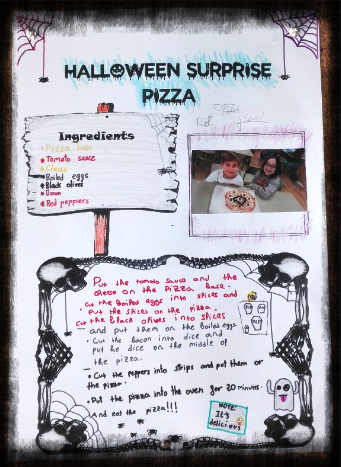 HALLOWEEN SURPRISE
PIZZA
Ingredients
Pizza base
Tomato sauce
Cheese
Boiled eggs
Black olives
Bacon
Red peppers
Put the tomato sauce and the
cheese on the pizza base.
Cut the boiled eggs into slices and
put the slices on the pizza.
Cut the black olives into slices
and put them on the boiled eggs
Cut the bacon into dice and
put he dice on the middle of
the pizza.
Cut the peppers into strips and put them on
the pizza.
Put the pizza into the oven for 20 minutes.
And eat the pizza!!!
NOTE:
It's
delicious